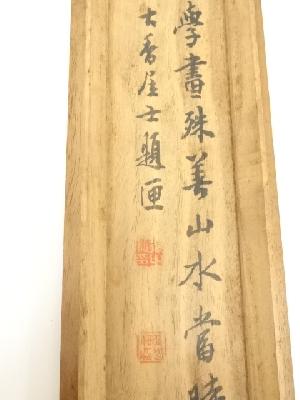 學書殊善山水當時
大香居士題匣